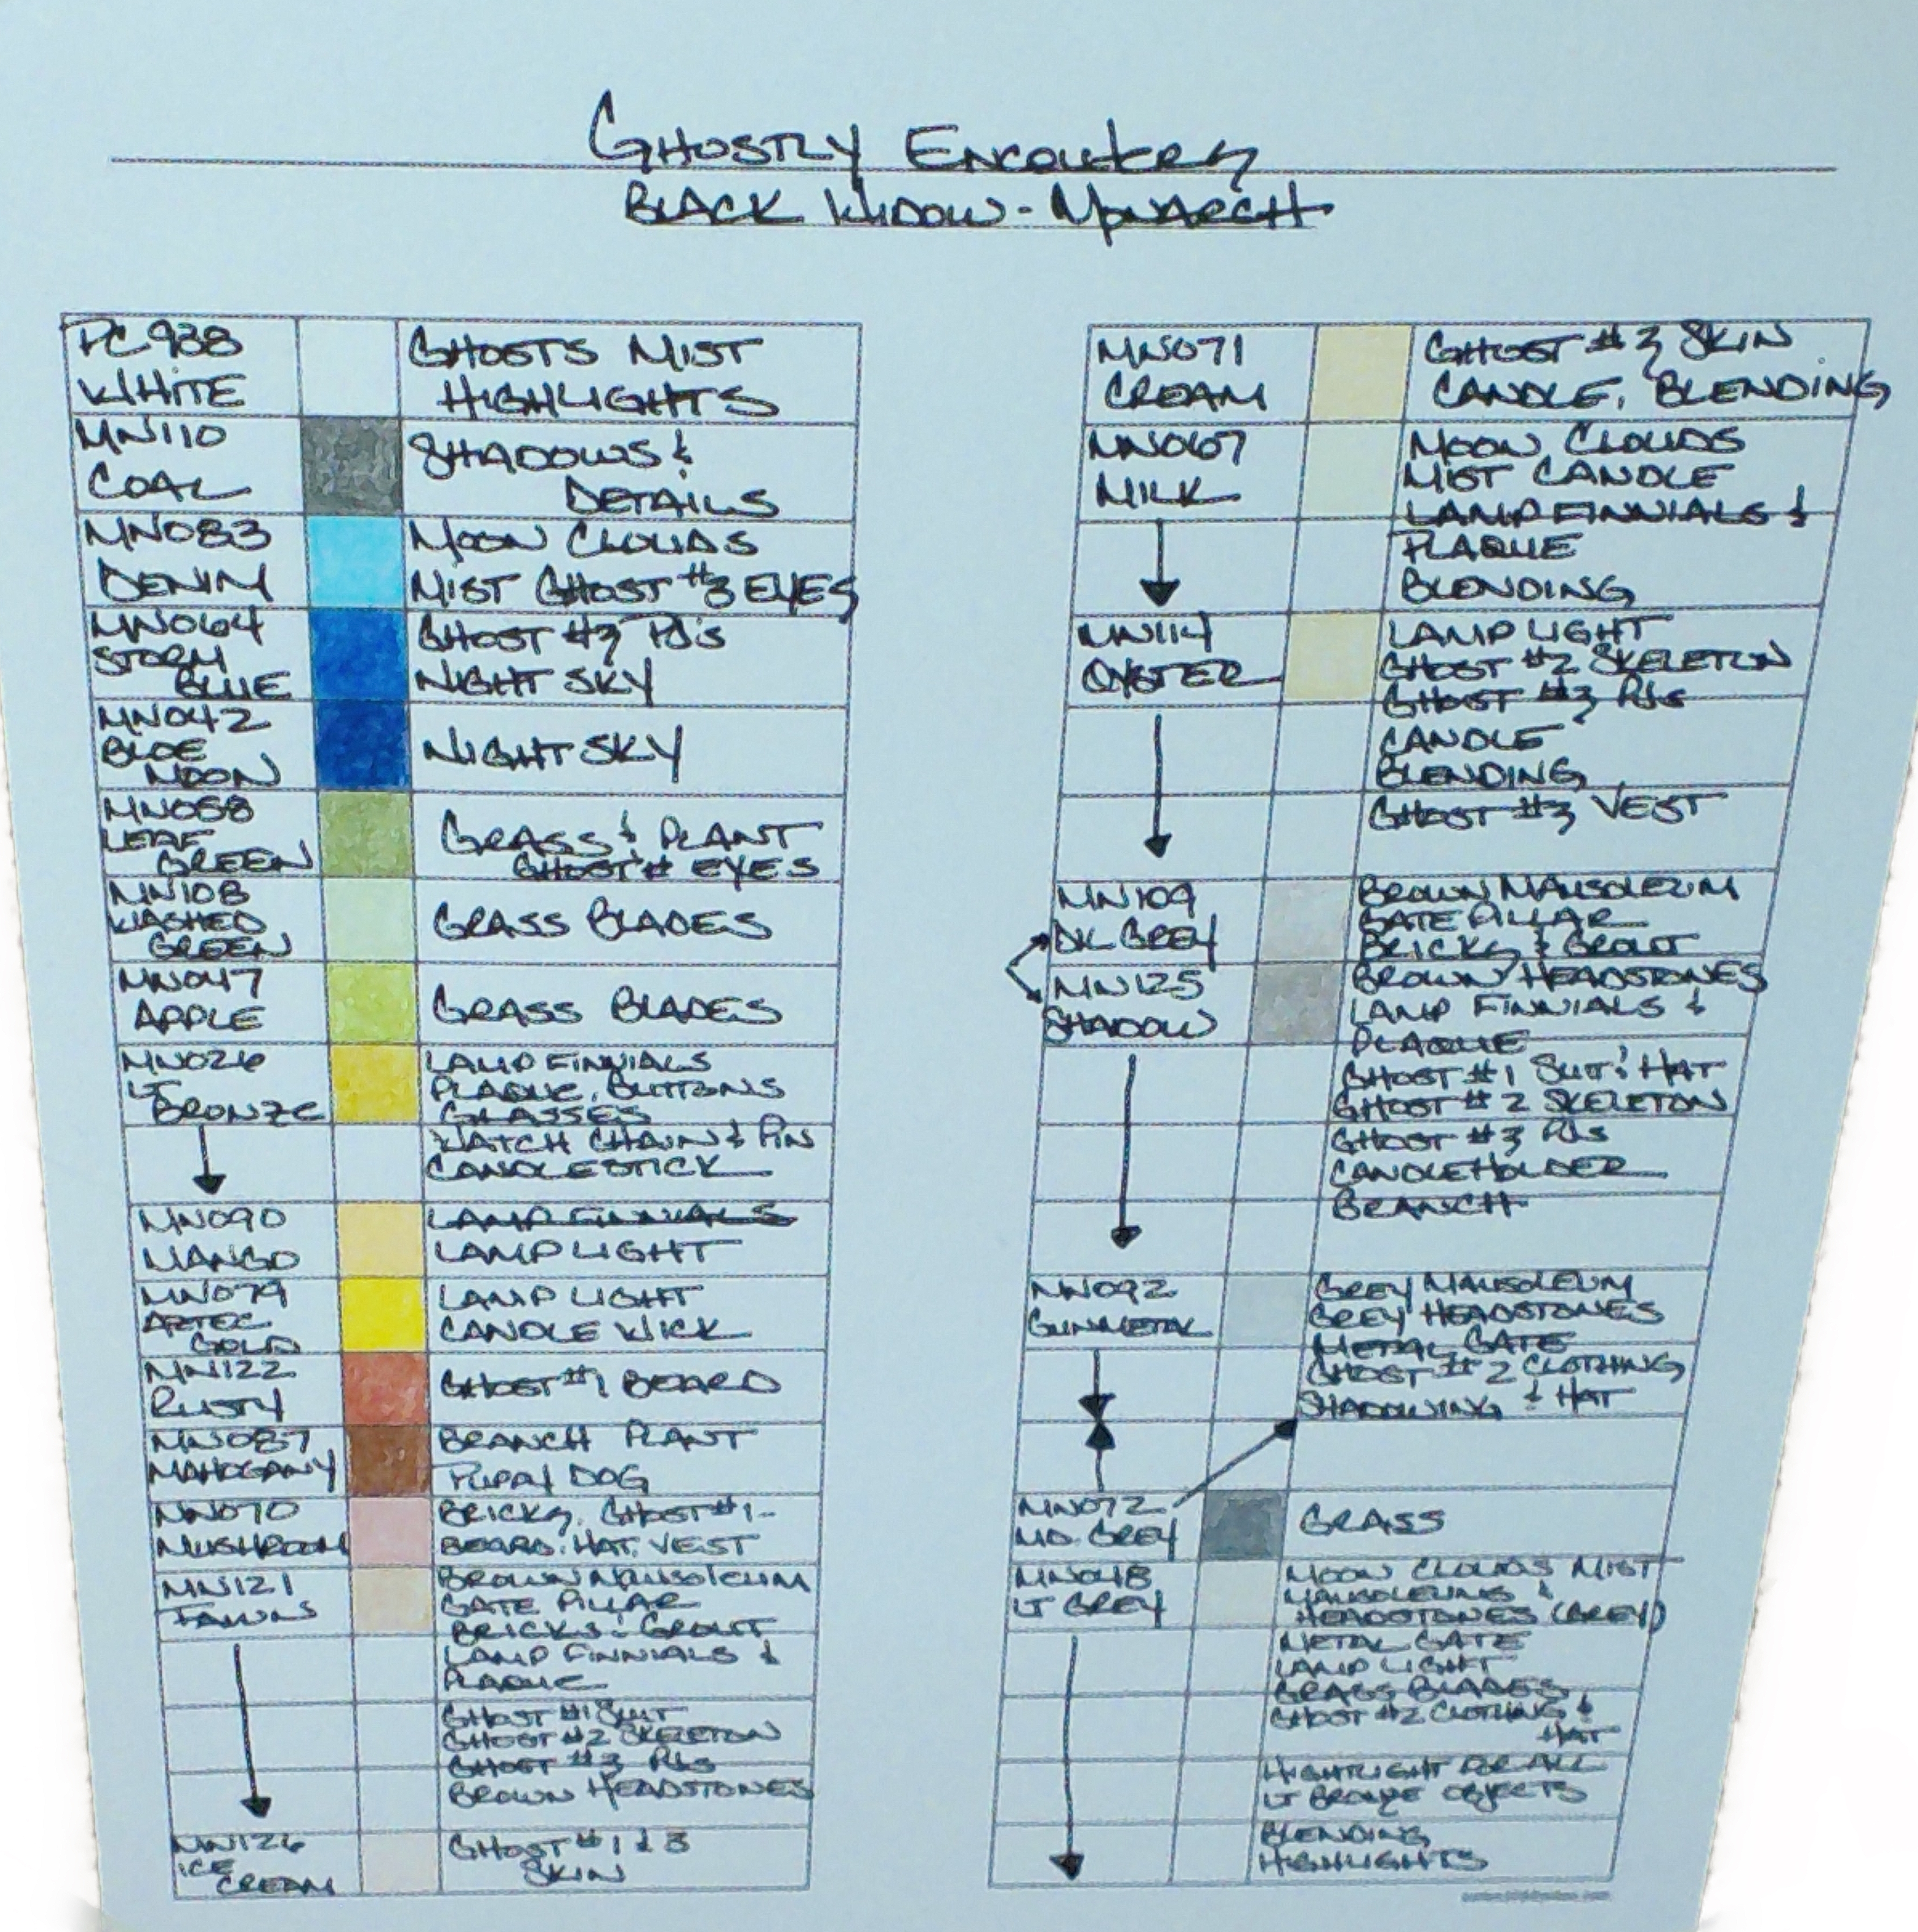 Ghostly Encounters
Black Widow - Monarch
PC938
White
Ghosts Mist
Highlights
MN110
Coal
Shadows &
Details
MN083
Denim
Moon Clouds
Mist Ghost #3 Eyes
MN064
Storm
Blue
Ghost #3 PJs
Night Sky
MN042
Blue
Moon
Night Sky
MN058
Leaf
Green
Grass & Plant
Ghost # Eyes
MN108
Washed
Green
Grass Blades
MN047
Apple
Grass Blades
MN026
LT
Bronze
Lamp Finnials
Plaque, Buttons
Glasses
Watch Chain & Pin
Candlestick
MN090
Mango
Lamp Finnials
Lamp Light
MN079
Aztec
Gold
Lamp Light
Candle Wick
MN122
Rusty
Ghost #1 Beard
MN087
Mahogany
Branch Plant
Puppy Dog
MN070
Mushroom
Bricks, Ghost #1-
Beard, Hat, Vest
MN121
Fawn
Brown Mausoleum
Gate Pillar
Bricks & Grout
Lamp Finnials &
Plaque
Ghost #1 Suit
Ghost #2 Skeleton
Ghost #3 PJs
Brown Headstones
MN126
Ice
Cream
Ghost #1 & 3
Skin
MN071
Cream
Ghost #3 Skin
Candle, Blending
MN067
Milk
Moon Clouds
Mist Candle
Lamp Finnials &
Plaque
Blending
MN114
Oyster
Lamp Light
Ghost #2 Skeleton
Ghost #3 PJs
Candle
Blending
Ghost #3 Vest
MN109
DK Grey
Brown Mausoleum
Gate Pillar
Bricks & Grout
MN125
Shadow
Brown Headstones
Lamp Finnials &
Plaque
Ghost #1 Suit & Hat
Ghost #2 Skeleton
Ghost #3 PJs
Candleholder
Branch
MN092
Gunmetal
Grey Mausoleum
Grey Headstones
Metal Gate
Ghost #2 Clothing
Shadowing & Hat
MN072
MD. Grey
Grass
MN048
LT Grey
Moon Clouds Mist
Mausoleums &
Headstones (Grey)
Metal Gate
Lamp Light
Grass Blades
Ghost #2 Clothing &
Hat
Hightlight for all
LT Bronze Objects
Blending
Highlights